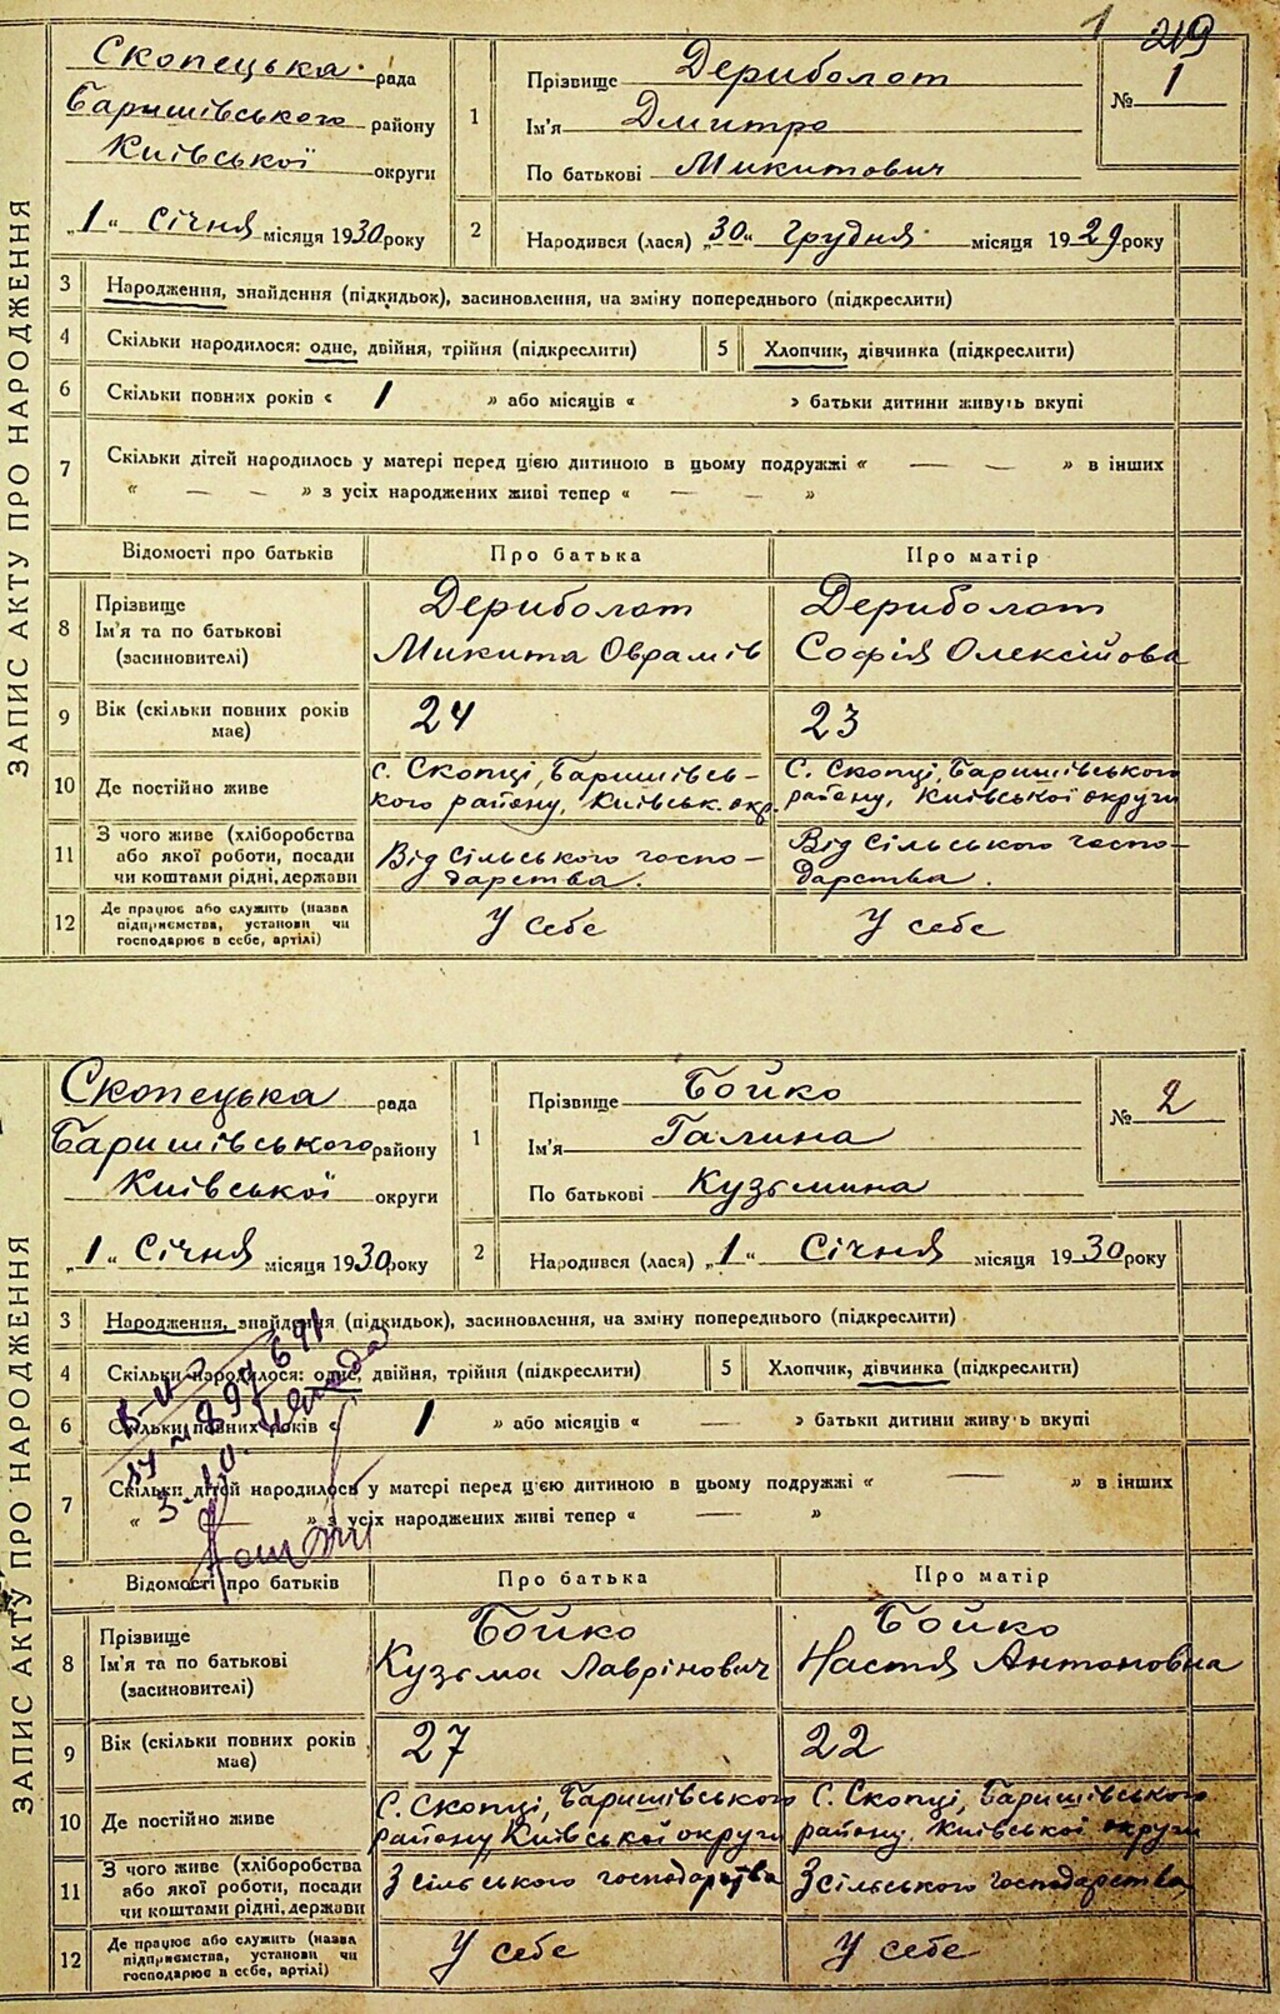 1 219
ЗАПИС АКТУ ПРО НАРОДЖЕННЯ
Скопецька рада
Баришівського району
Київської округи
„1“ Січня місяця 1930 року
1
Прізвище Дериболот
Ім'я Дмитро
По батькові Микитович
№ 1
2 Народився (лася) „30“ Грудня місяця 1929 року
3 Народження, знайдення (підкидьок), засиновлення, на зміну попереднього (підкреслити)
4 Скільки народилося: одне, двійня, трійня (підкреслити) 5 Хлопчик, дівчинка (підкреслити)
6 Скільки повних років « 1 » або місяців « » батьки дитини живуть вкупі
7 Скільки дітей народилось у матері перед цією дитиною в цьому подружжі « — — » в інших
« — — » з усіх народжених живі тепер « — — »
Відомості про батьків Про батька Про матір
8 Прізвище Дериболот Дериболот
Ім'я та по батькові Микита Оврамів Софія Олексійова
(засиновителі)
9 Вік (скільки повних років 24 23
має)
10 Де постійно живе с. Скопці, Баришівсь- С. Скопці, Баришівського
кого району, Київськ. окр. району, Київської округи
11 З чого живе (хліборобства
або якої роботи, посади Від сільського госпо- Від сільського госпо-
чи коштами рідні, держави дарства. дарства.
12 Де працює або служить (назва
підприємства, установи чи У себе У себе
господарює в себе, артілі)
ЗАПИС АКТУ ПРО НАРОДЖЕННЯ
Скопецька рада
Баришівського району
Київської округи
„1“ Січня місяця 1930 року
1
Прізвище Бойко
Ім'я Галина
По батькові Кузьмина
№ 2
2 Народився (лася) „1“ Січня місяця 1930 року
3 Народження, знайдення (підкидьок), засиновлення, на зміну попереднього (підкреслити)
4 Скільки народилося: одне, двійня, трійня (підкреслити) 5 Хлопчик, дівчинка (підкреслити)
6 Скільки повних років « 1 » або місяців « — » батьки дитини живуть вкупі
7 Скільки дітей народилось у матері перед цією дитиною в цьому подружжі « — » в інших
« » з усіх народжених живі тепер « — »
Відомості про батьків Про батька Про матір
8 Прізвище Бойко Бойко
Ім'я та по батькові Кузьма Лаврінович Настя Антоновна
(засиновителі)
9 Вік (скільки повних років 27 22
має)
10 Де постійно живе С. Скопці, Баришівського С. Скопці, Баришівського
району, Київської округи району, Київської округи
11 З чого живе (хліборобства
або якої роботи, посади З сільського господарства З сільського господарства
чи коштами рідні, держави
12 Де працює або служить (назва
підприємства, установи чи У себе У себе
господарює в себе, артілі)